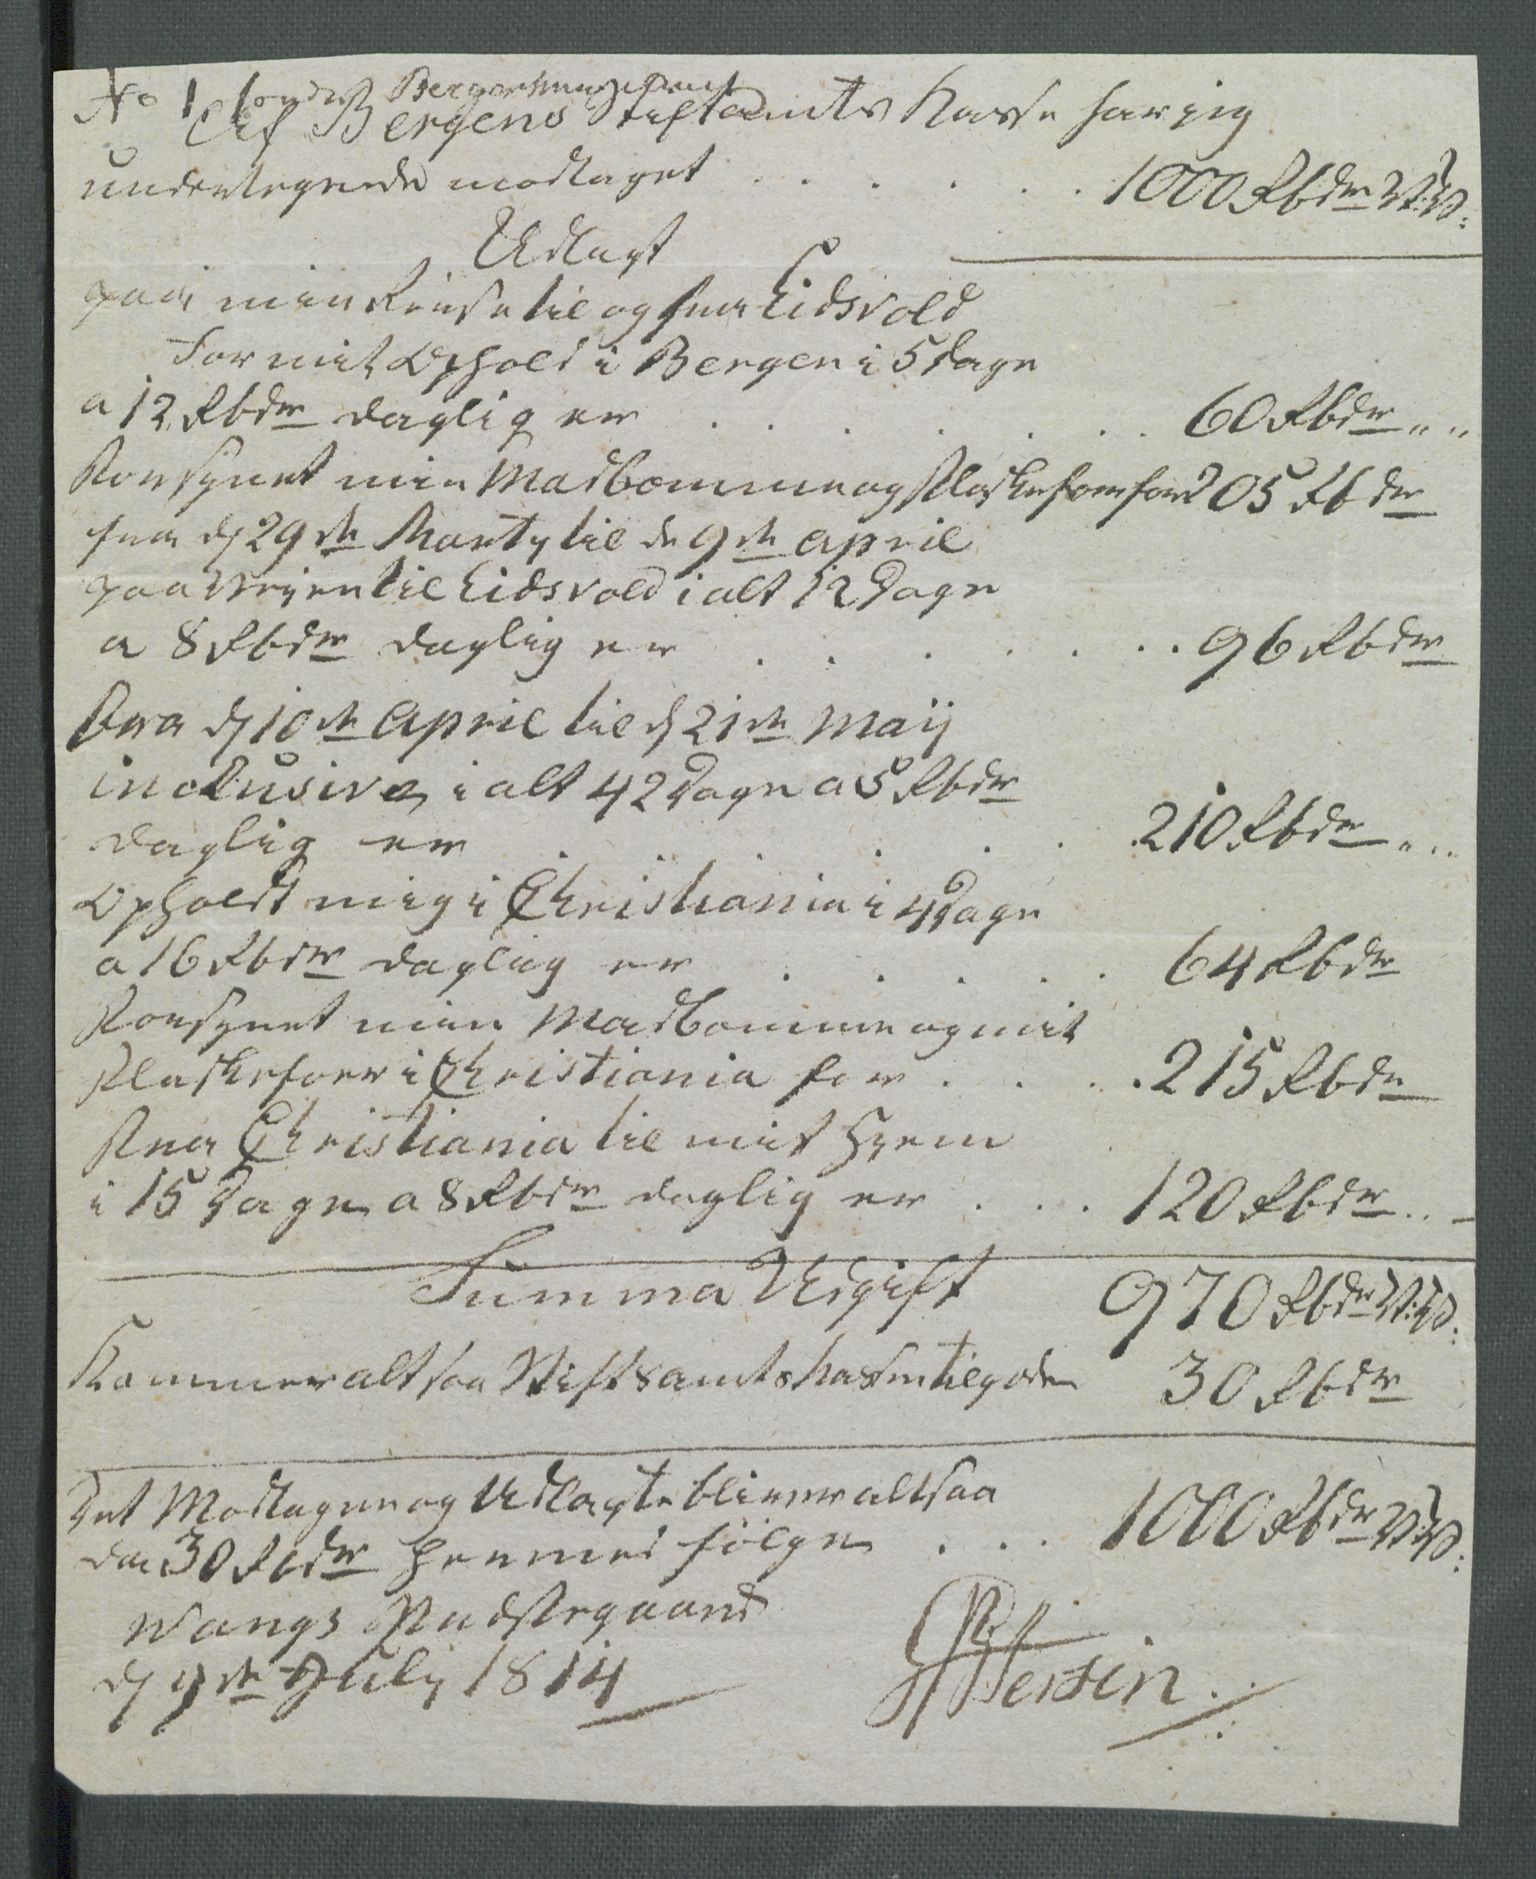 No 1
Af Bergens Stiftamts Kasse har jeg
undertegnede modtaget . . . . . . 1000 Rbdr N:V:
Udlagt
paa min Reise til og fra Eidsvold
For mit Ophold i Bergen i 5 Dage
a 12 Rbdr daglig er . . . . . . 60 Rbdr „ „
Forsynet min Madbomme og Flaskefoer for 205 Rbdr
fra d 29de Marty til d 9de April
paa Veyen til Eidsvold i alt 12 Dage
a 8 Rbdr daglig er . . . . . . . 96 Rbdr
Fra d 10de April til d 21de Maij
inclusive, i alt 42 Dage a 5 Rbdr
daglig er . . . . . 210 Rbdr „ „
Opholdt mig i Christiania i 4 Dage
a 16 Rbdr daglig er . . . . . 64 Rbdr
Forsynet min Madbomme og mit
Flaskefoer i Christiania for . . . . 215 Rbdr
Fra Christiania til mit Hjem
i 15 Dage a 8 Rbdr daglig er . . . 120 Rbdr „ –
Summa Udgift 970 Rbdr N:V:
Kommer altsaa Stiftsamtskassen tilgode 30 Rbdr
Det Modtagne og Udlagte bliver altsaa 1000 Rbdr N:V:
da 30 Rbdr hermed følger . . .
Wangs Præstegaard
d 9de July 1814